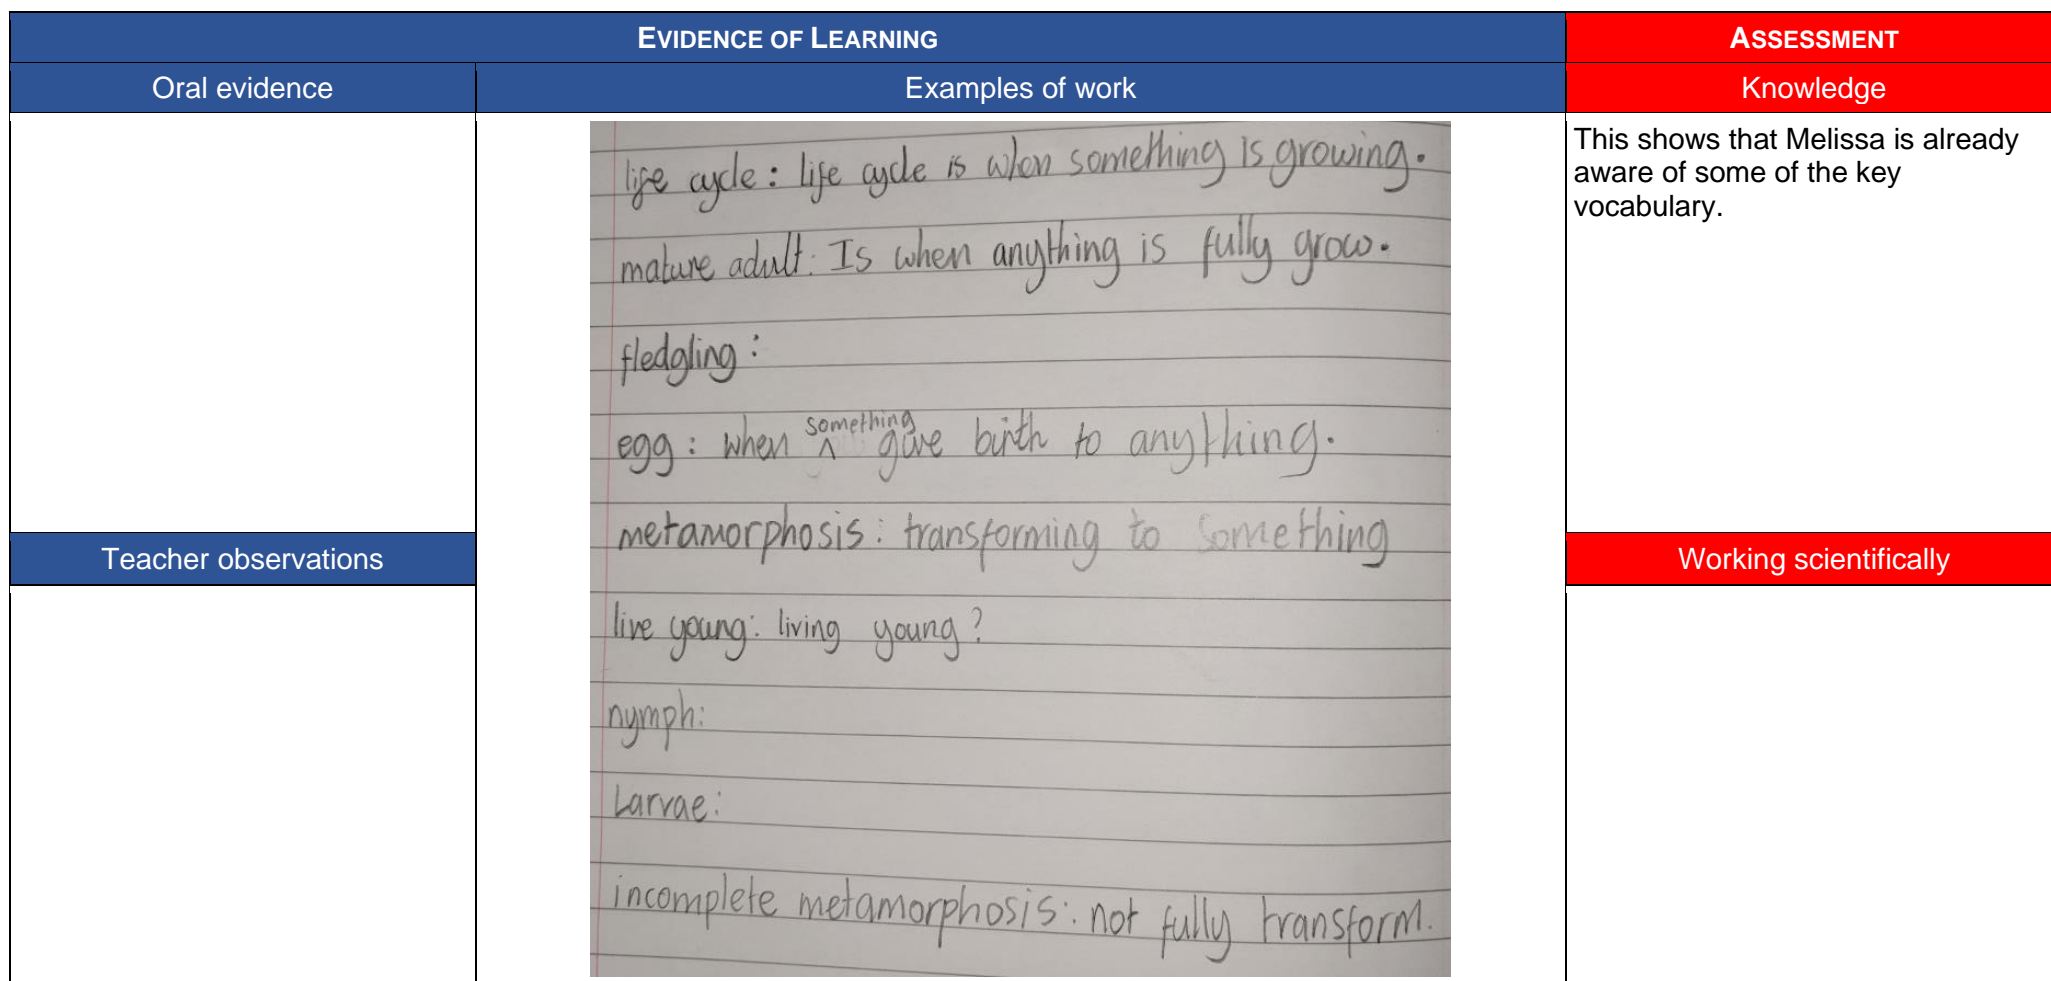 EVIDENCE OF LEARNING
ASSESSMENT
Oral evidence
Examples of work
Knowledge
life cycle: life cycle is when something is growing.
mature adult: Is when anything is fully grow.
fledgling:
egg: when something give birth to anything.
metamorphosis: transforming to something
live young: living young?
nymph:
Larvae:
incomplete metamorphosis: not fully transform.
This shows that Melissa is already
aware of some of the key
vocabulary.
Teacher observations
Working scientifically